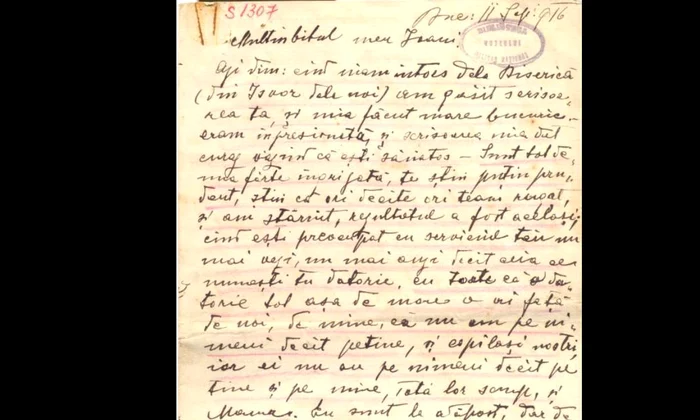 S 1307
Buc: 11 Sept. 916
Multiubitul meu Joani,
Azi dim: cind niam intors dela Biserică
(din Isvor dela noi) am găsit scrisoa-
rea ta, și mia făcut mare bucurie -
eram inpresionată, și scrisoarea mia dat
curaj văzind că ești sănătos - Sunt tot dea-
una fórte ingrijată, te știu puțin pru-
dent, știu că ori decite ori team rugat,
și am stăruit, rezultatul a fost același;
cind ești preocupat cu serviciul tău nu
mai vezi, nu mai auzi decit ceia ce
numești tu datorie, cu toate că o da-
torie tot așa de mare o ai față
de noi, de mine, că nu am pe ni-
meni decit petine, și copilași noștri
iar ei nu au pe nimeni decit pe
tine și pe mine, tată lor scump, și
Mama. Eu sunt la adăpost, dar de